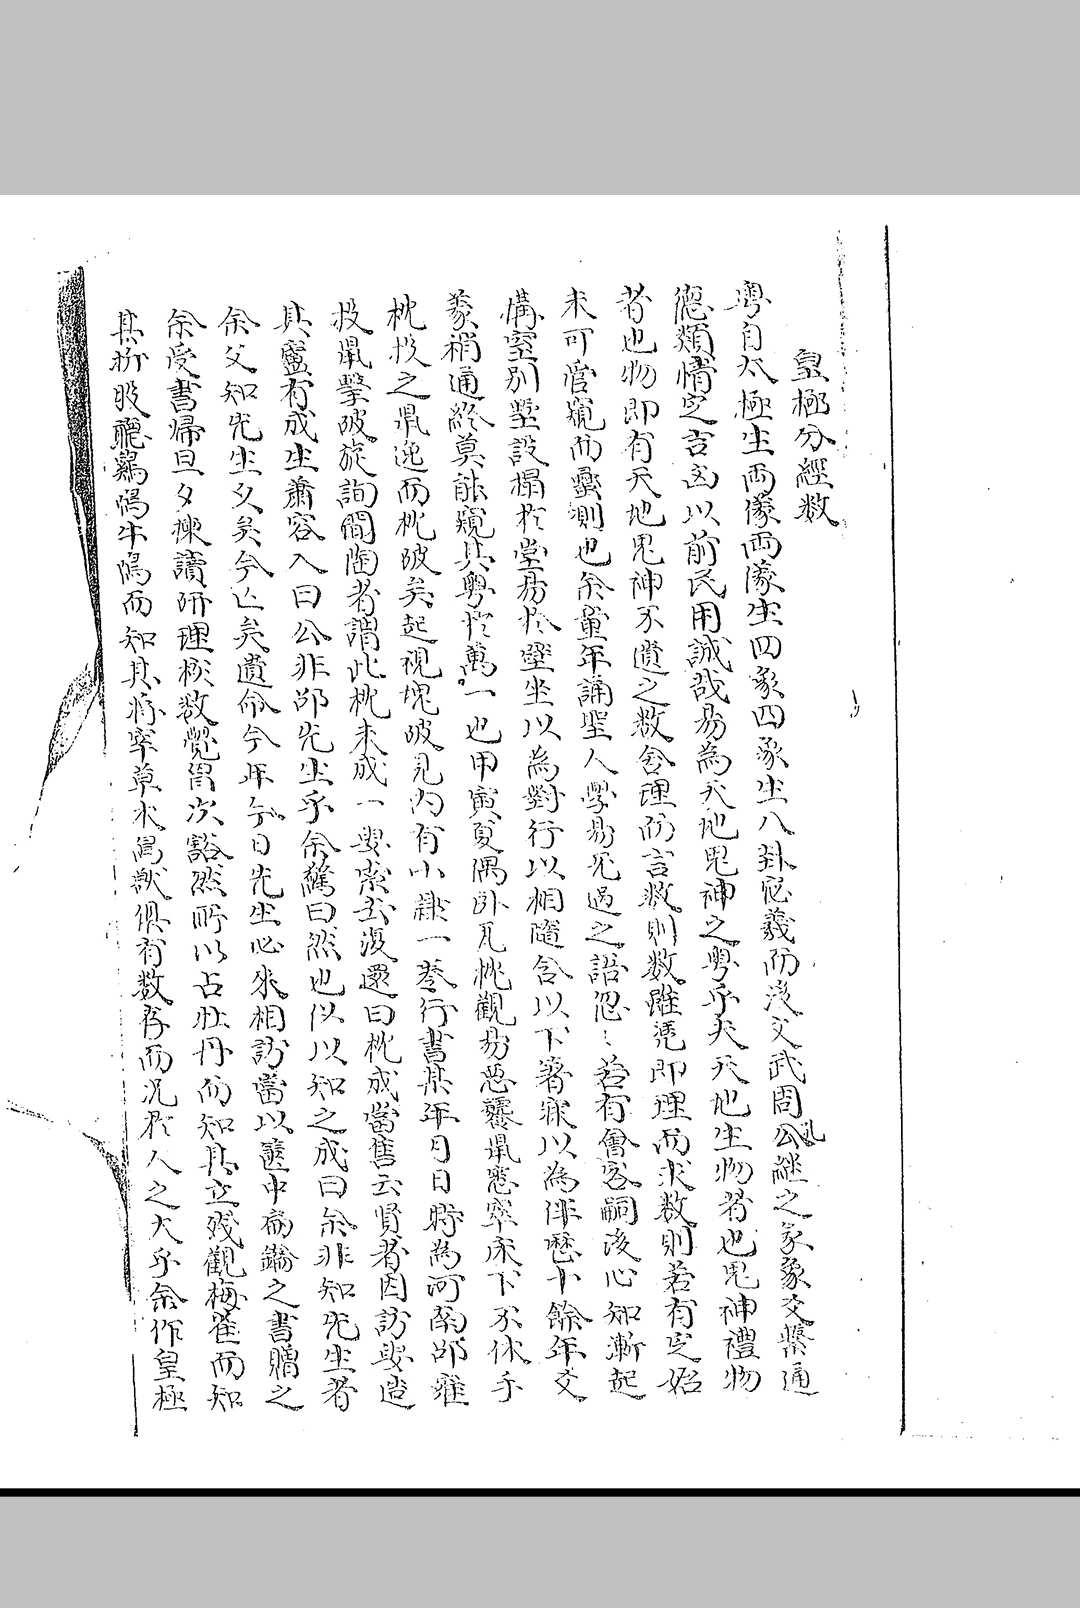 皇極分經数
粤自太極生両儀両儀生四象四象生八卦宓羲而後文武周公孔継之彖象爻繫通
德類情定吉凶以前民用誠哉易為天地鬼神之粤乎夫天地生物者也鬼神禮物
者也物即有天地鬼神不遺之数舍理而言数則数雖凴即理而求数則若有定始
未可管窺而蠡測也余童年誦聖人學易无過之語忽〻若有會客嗣後心知漸起
構室別墅設榻於堂易於壁坐以為對行以相隨食以下著寐以為伴歷十餘年爻
彖稍通終莫能窺其粤於萬一也甲寅夏偶卧瓦枕觀易惡鼠窓窣床下不休手
枕投之鼠逸而枕破矣起視塊破見内有小隷一卷行書某年月日時為河南邵雍
投鼠擊破旋詢問陶者謂此枕未成一叟索去復還曰枕成當售云賢者因訪叟造
其廬有成生肅容入曰公非邵先生乎余驚曰然也似以知之成曰余非知先生者
余父知先生久矣今亡矣遺命今年今日先生必來相訪當以篋中扃鑰之書贈之
余受書帰旦夕揀讀研理核数覺胷次豁然所以占牡丹而知其立残觀梅雀而知
其折股聽鷄鳴牛鳴而知其将宰草木鳥獣俱有数存而况於人之大乎余作皇極